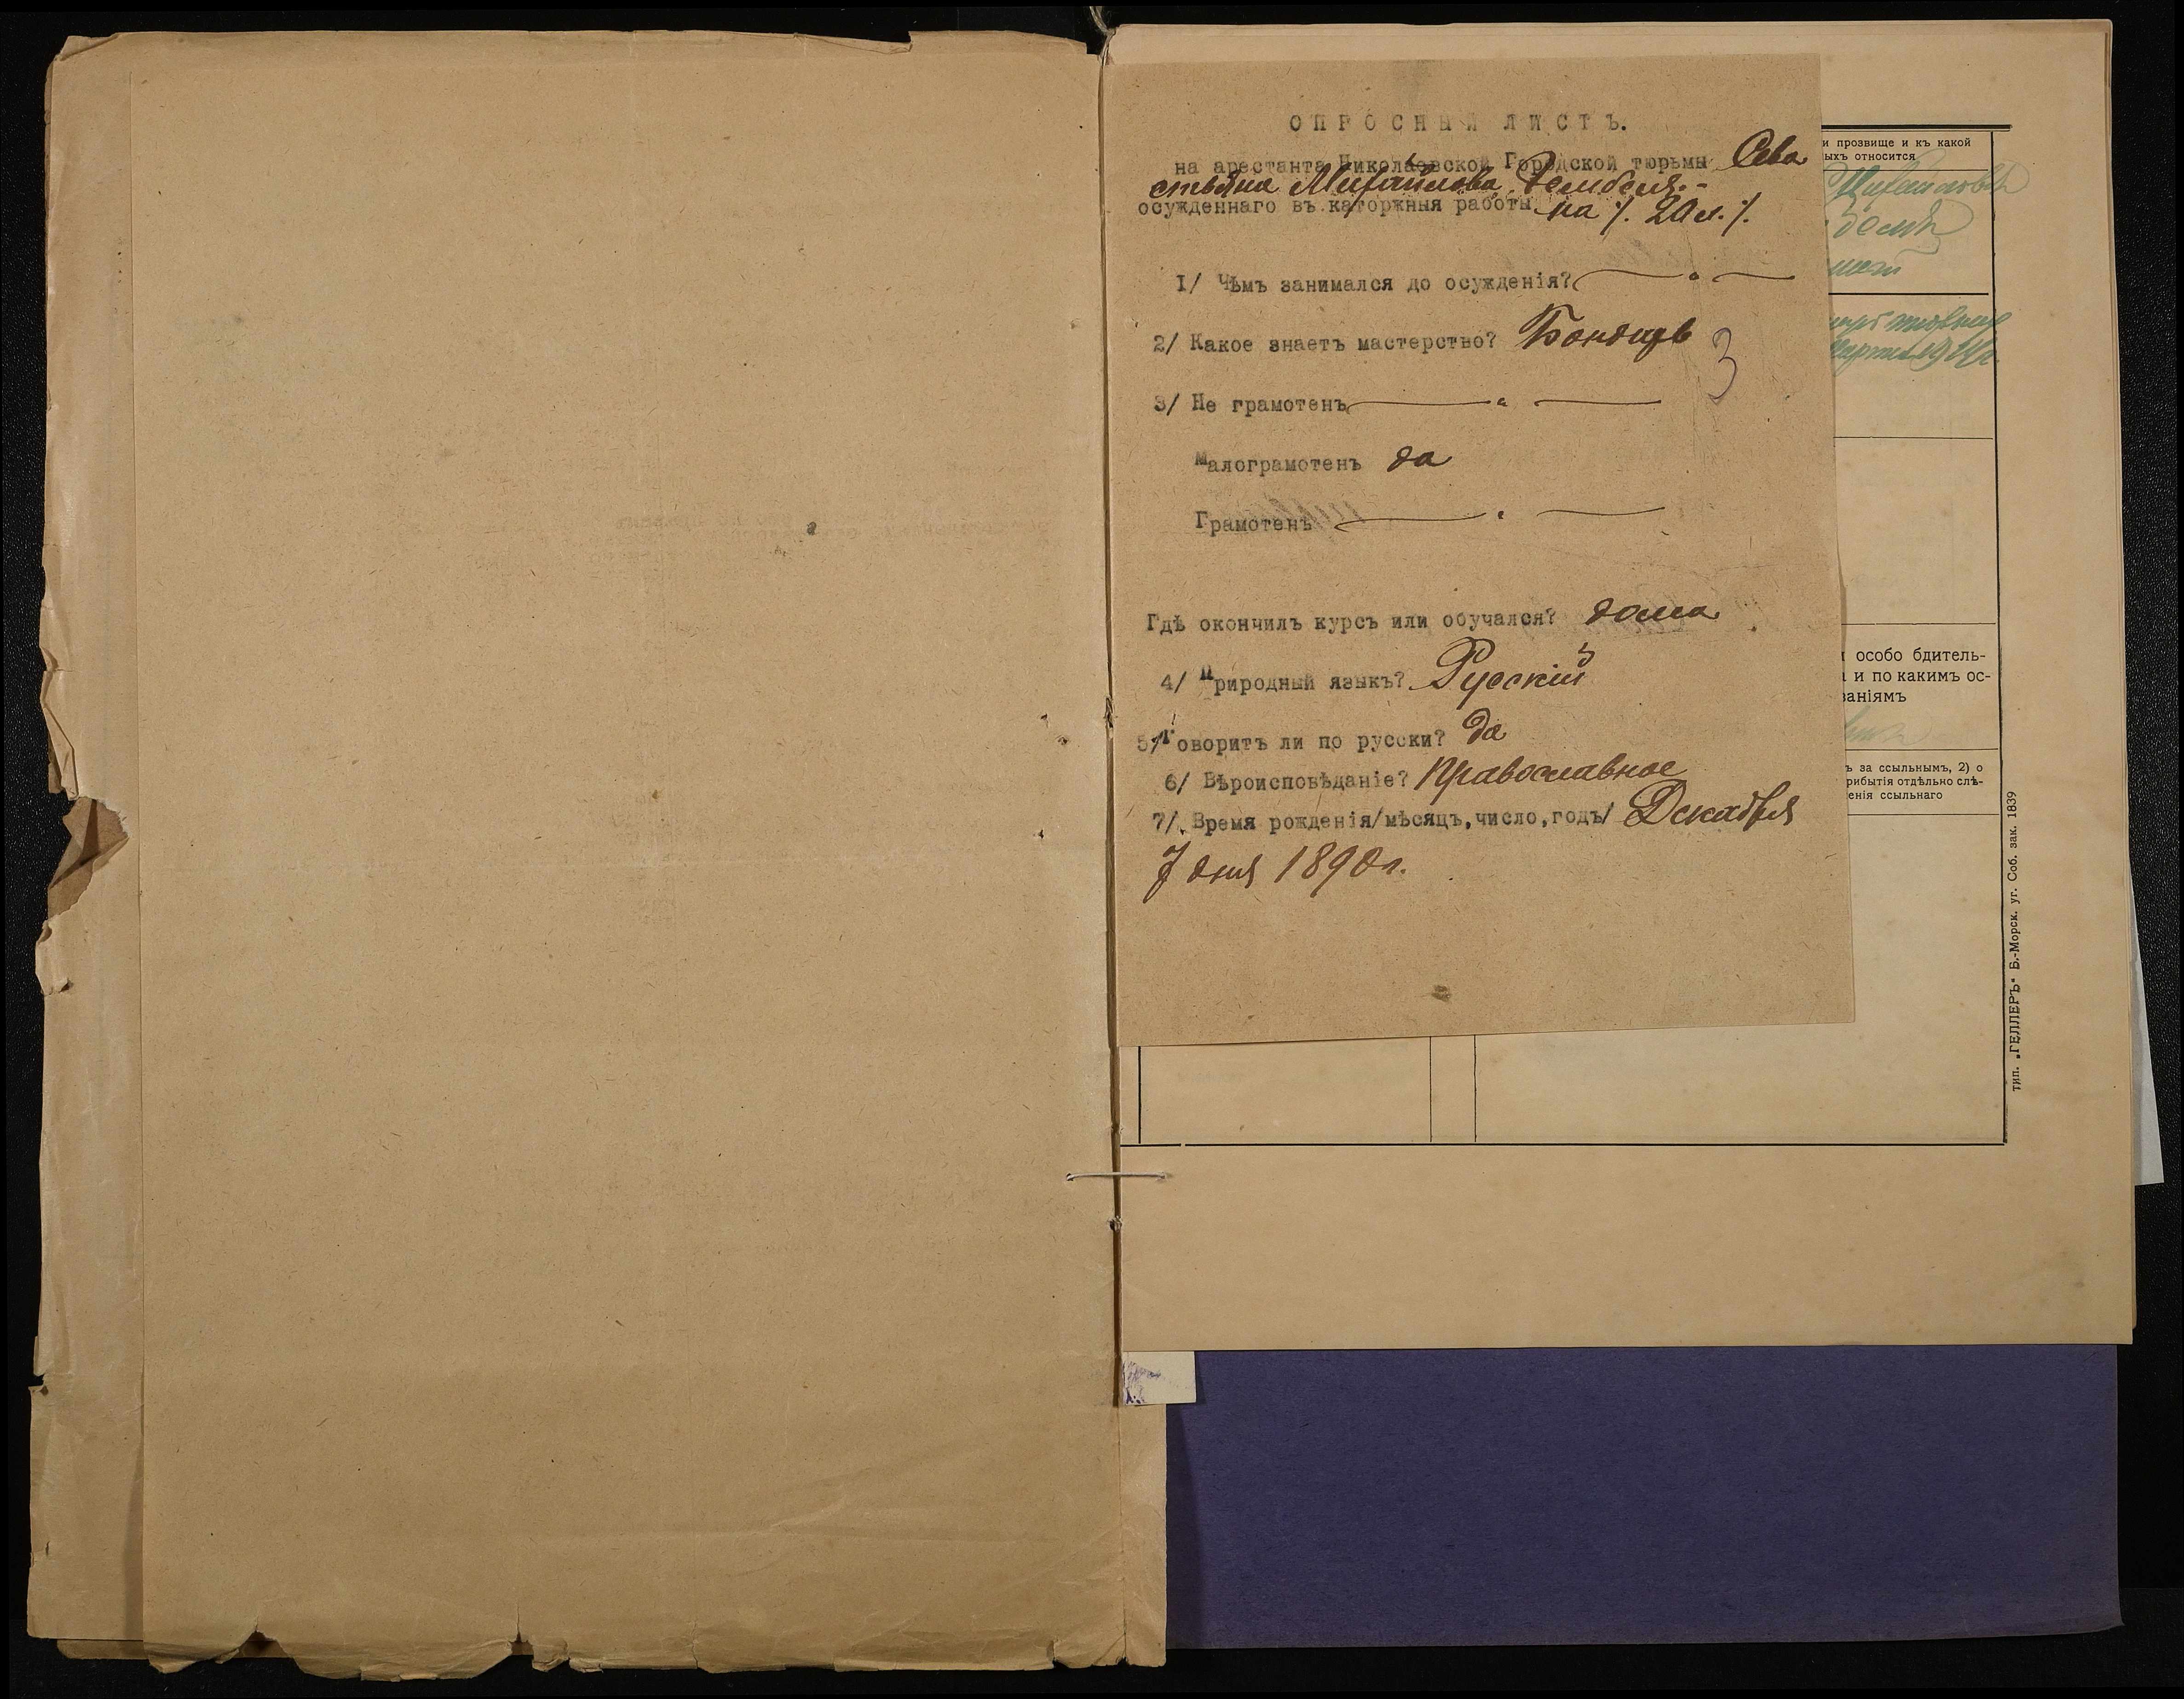 ОПРОСНЫЙ ЛИСТЪ.
на арестанта Николаевской Городской тюрьмы Сева
стьяна Михайлова Дембеля.-
осужденнаго въ каторжныя работы на /. 20 л. /.
1/ Чѣмъ занимался до осужденія? — " —
2/ Какое знаетъ мастерство? Бондарь
3
3/ Не грамотенъ — " —
Малограмотенъ да
Грамотенъ — " —
Гдѣ окончилъ курсъ или обучался? дома
4/ Природный языкъ? Русскій
5/ Говоритъ ли по русски? да
6/ Вѣроисповѣданіе? Православное
7/ Время рожденія/мѣсяцъ,число,годъ/ Декабря
7 дня 1890 г.
и прозвище и къ какой
ыхъ относится
Михайловъ
белъ
и особо бдитель-
а и по какимъ ос-
ваніямъ
ъ за ссыльнымъ, 2) о
рибытія отдѣльно слѣ-
енія ссыльнаго
тип. „ГЕЛЛЕРЪ" Б.-Морск. уг. Соб. зак. 1839